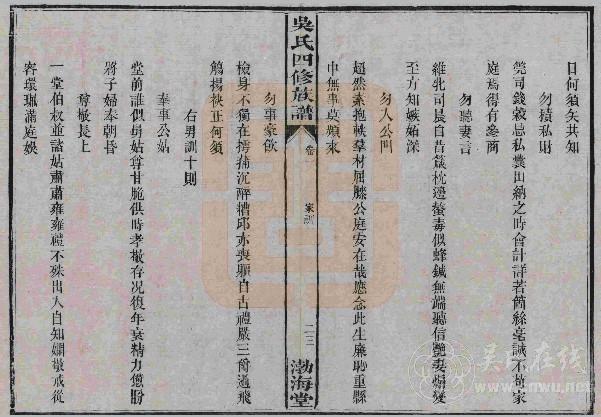 日何須矣共知
勿積私財
筦司錢穀忌私囊出納之時會計詳若箇絲毫誠不苟家
庭焉得有參商
勿聽妻言
維牝司晨自昔箴枕邊螫毒似蜂鍼無端聽信艷妻煽變
至方知嫉妬深
勿入公門
超然素抱軼羣材屈膝公庭安在哉應念此生廉恥重縣
中無事莫頻來
吳氏四修族譜
卷
家訓
二三
渤海堂
勿事豪飲
檢身不獨在摴蒱沉醉糟邱亦喪軀自古禮嚴三爵過飛
觴揚袂正何須
右男訓十則
奉事公姑
堂前誰似舅姑尊甘脆供時孝敬存况復年衰精力憊盼
將子婦奉朝昏
尊敬長上
一堂伯叔並諸姑肅肅雍雍禮不殊出入自知嫻敬戒從
容環珮滿庭娛
吴氏在线
www.cnwu.net